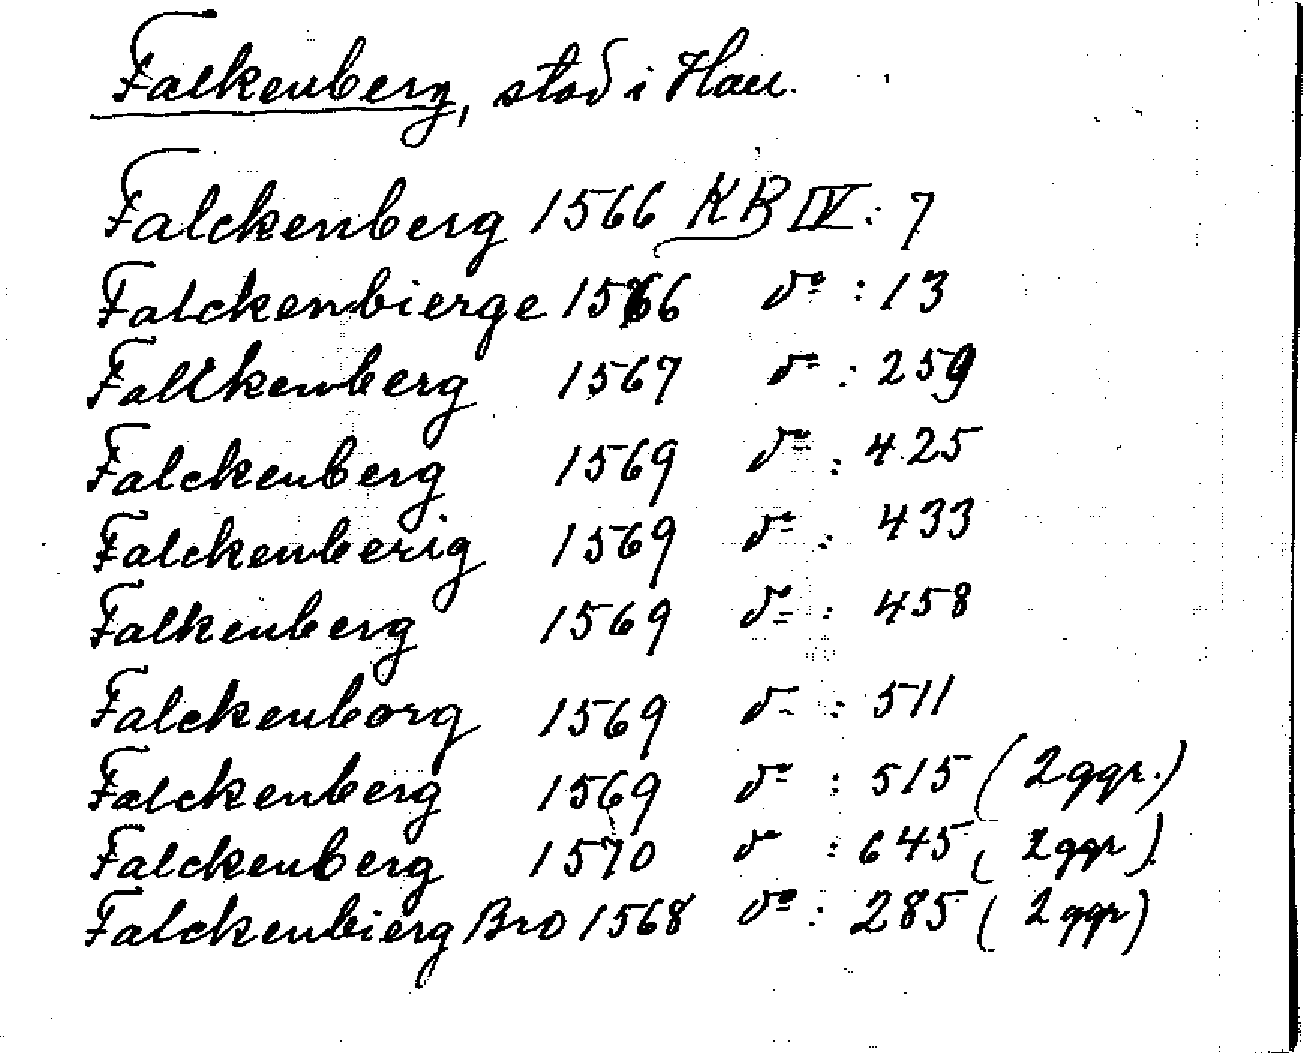 Falkenberg, stad i Hall.
Falckenberg 1566 KB IV: 7
Falckenbierge 1566 do : 13
Falkkenberg 1567 do : 259
Falckenberg 1569 do : 425
Falckenberig 1569 do : 433
Falkenberg 1569 do : 458
Falckenborg 1569 do : 511
Falckenberg 1569 do : 515 (2 ggr.)
Falckenberg 1570 do : 645 (2 ggr)
Falckenbierg Bro 1568 do : 285 (2 ggr)